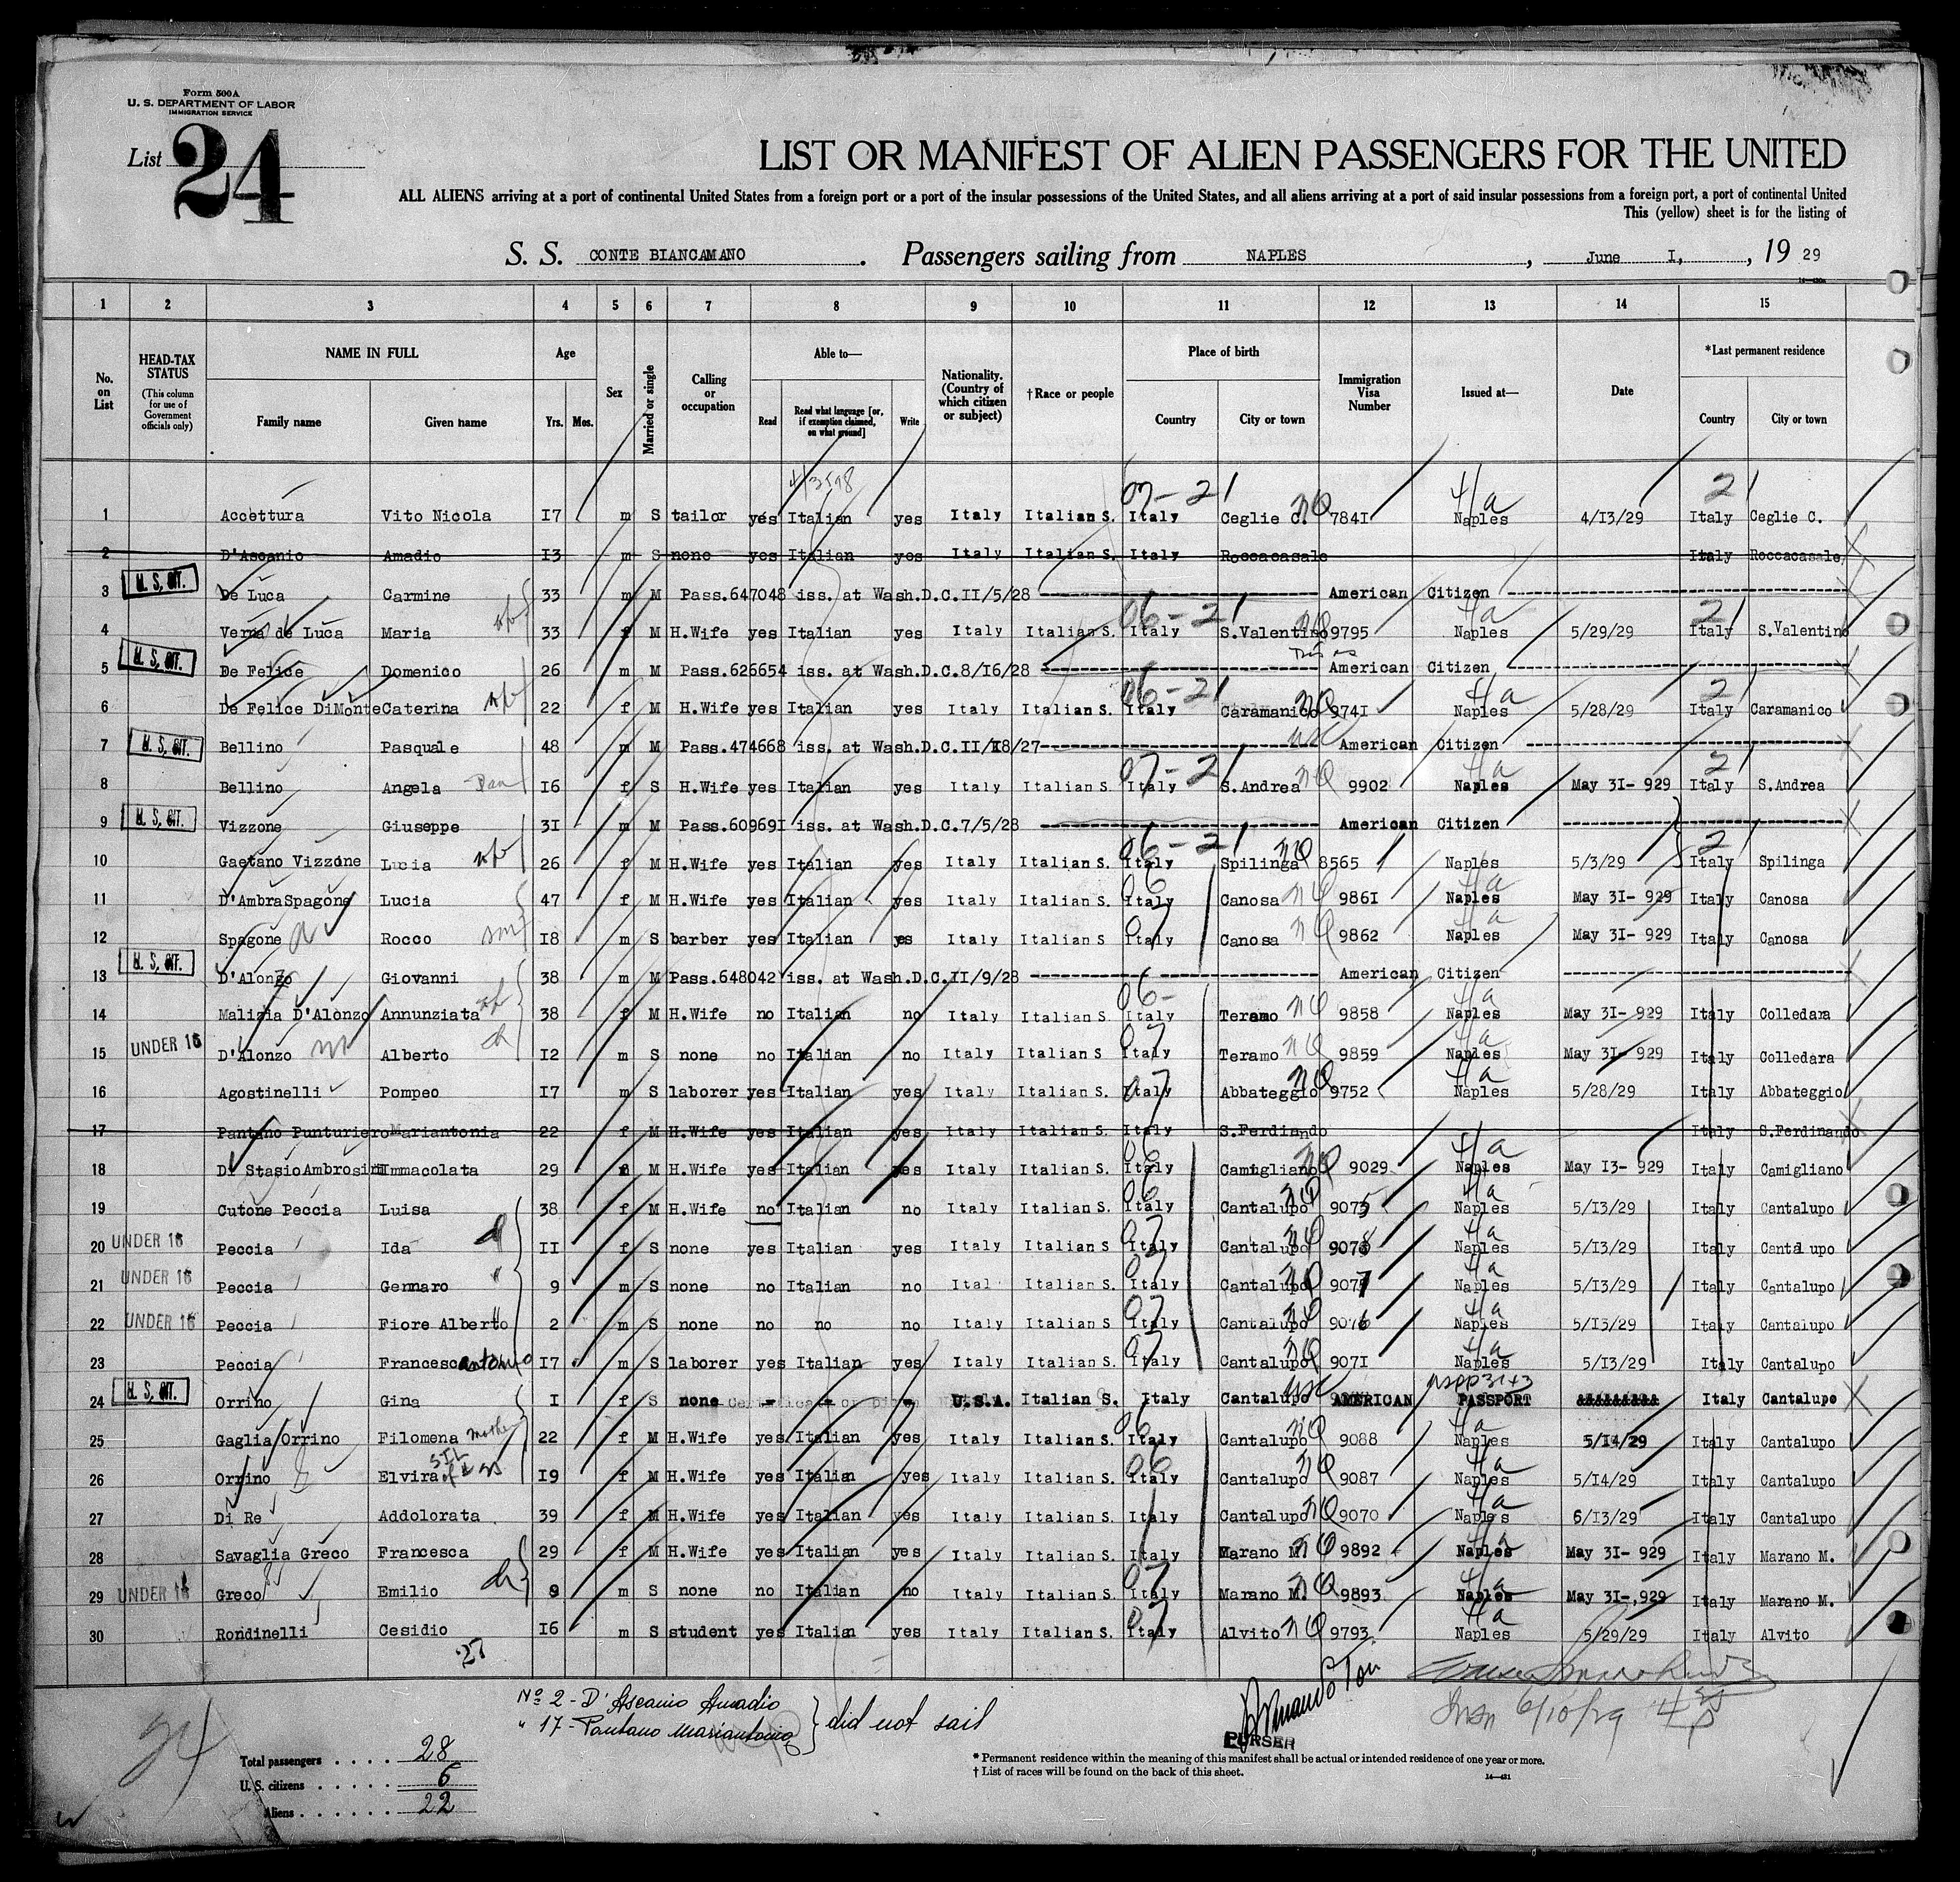 Form 500A
U. S. DEPARTMENT OF LABOR
IMMIGRATION SERVICE
List 24
LIST OR MANIFEST OF ALIEN PASSENGERS FOR THE UNITED
ALL ALIENS arriving at a port of continental United States from a foreign port or a port of the insular possessions of the United States, and all aliens arriving at a port of said insular possessions from a foreign port, a port of continental United
This (yellow) sheet is for the listing of
S. S. CONTE BIANCAMANO. Passengers sailing from NAPLES, June I, , 19 29
1 2 3 4 5 6 7 8 9 10 11 12 13 14 15
No. on List
HEAD-TAX STATUS (This column for use of Government officials only)
NAME IN FULL Family name Given name
Age Yrs. Mos.
Sex
Married or single
Calling or occupation
Able to— Read Read what language [or, if exemption claimed, on what ground] Write
Nationality. (Country of which citizen or subject)
†Race or people
Place of birth Country City or town
Immigration Visa Number
Issued at—
Date
*Last permanent residence Country City or town
07-21 4a 21
1 Accettura Vito Nicola I7 m S tailor yes Italian yes Italy Italian S. Italy Ceglie C. 784I Naples 4/I3/29 Italy Ceglie C.
2 D'Ascanio Amadio I3 m S none yes Italian yes Italy Italian S. Italy Roccacasale Italy Roccacasale
3 U. S. CIT. De Luca Carmine 33 m M Pass.647048 iss. at Wash.D.C.II/5/28 American Citizen
4 Verna de Luca Maria 33 f M H.Wife yes Italian yes Italy Italian S. Italy S.Valentino 9795 Naples 5/29/29 Italy S.Valentino
5 U. S. CIT. De Felice Domenico 26 m M Pass.626654 iss. at Wash.D.C.8/I6/28 American Citizen
6 De Felice DiMonte Caterina 22 f M H.Wife yes Italian yes Italy Italian S. Italy Caramanico 974I Naples 5/28/29 Italy Caramanico
7 U. S. CIT. Bellino Pasquale 48 m M Pass.474668 iss. at Wash.D.C.II/I8/27 American Citizen
8 Bellino Angela I6 f S H.Wife yes Italian yes Italy Italian S. Italy S.Andrea 9902 Naples May 3I- 929 Italy S.Andrea
9 U. S. CIT. Vizzone Giuseppe 3I m M Pass.60969I iss. at Wash.D.C.7/5/28 American Citizen
10 Gaetano Vizzone Lucia 26 f M H.Wife yes Italian yes Italy Italian S. Italy Spilinga 8565 Naples 5/3/29 Italy Spilinga
11 D'AmbraSpagone Lucia 47 f M H.Wife yes Italian yes Italy Italian S. Italy Canosa 986I Naples May 3I- 929 Italy Canosa
12 Spagone Rocco I8 m S barber yes Italian yes Italy Italian S Italy Canosa 9862 Naples May 3I- 929 Italy Canosa
13 U. S. CIT. D'Alonzo Giovanni 38 m M Pass.648042 iss. at Wash.D.C.II/9/28 American Citizen
14 Malizia D'Alonzo Annunziata 38 f M H.Wife no Italian no Italy Italian S. Italy Teramo 9858 Naples May 3I- 929 Italy Colledara
15 UNDER 16 D'Alonzo Alberto I2 m S none no Italian no Italy Italian S Italy Teramo 9859 Naples May 3I- 929 Italy Colledara
16 Agostinelli Pompeo I7 m S laborer yes Italian yes Italy Italian S. Italy Abbateggio 9752 Naples 5/28/29 Italy Abbateggio
17 Pantano Punturiero Mariantonia 22 f M H.Wife yes Italian yes Italy Italian S. Italy S.Ferdinando Italy S.Ferdinando
18 Di StasioAmbrosini Immacolata 29 f M H.Wife yes Italian yes Italy Italian S. Italy Camigliano 9029 Naples May I3- 929 Italy Camigliano
19 Cutone Peccia Luisa 38 f M H.Wife no Italian no Italy Italian S. Italy Cantalupo 9075 Naples 5/I3/29 Italy Cantalupo
20 UNDER 16 Peccia Ida II f S none yes Italian yes Italy Italian S Italy Cantalupo 9078 Naples 5/I3/29 Italy Cantalupo
21 UNDER 16 Peccia Gennaro 9 m S none no Italian no Ital Italian S. Italy Cantalupo 9077 Naples 5/I3/29 Italy Cantalupo
22 UNDER 16 Peccia Fiore Alberto 2 m S none no no no Italy Italian S Italy Cantalupo 9076 Naples 5/I3/29 Italy Cantalupo
23 Peccia Francescantonio I7 m S laborer yes Italian yes Italy Italian S. Italy Cantalupo 907I Naples 5/I3/29 Italy Cantalupo
24 U. S. CIT. Orrino Gina I f S none U.S.A. Italian S. Italy Cantalupo AMERICAN PASSPORT Italy Cantalupo
25 Gaglia Orrino Filomena mother 22 f M H.Wife yes Italian yes Italy Italian S. Italy Cantalupo 9088 Naples 5/I4/29 Italy Cantalupo
26 Orrino Elvira I9 f M H.Wife yes Italian yes Italy Italian S. Italy Cantalupo 9087 Naples 5/I4/29 Italy Cantalupo
27 Di Re Addolorata 39 f M H.Wife yes Italian yes Italy Italian S. Italy Cantalupo 9070 Naples 6/I3/29 Italy Cantalupo
28 Savaglia Greco Francesca 29 f M H.Wife yes Italian yes Italy Italian S. Italy Marano M. 9892 Naples May 3I- 929 Italy Marano M.
29 UNDER 16 Greco Emilio 9 m S none no Italian no Italy Italian S. Italy Marano M. 9893 Naples May 3I-,929 Italy Marano M.
30 Rondinelli Cesidio I6 m S student yes Italian yes Italy Italian S. Italy Alvito 9793 Naples 5/29/29 Italy Alvito
27
No 2 - D'Ascanio Amadio
" 17 - Pantano Mariantonia } did not sail
PURSER
6/10/29
24
Total passengers . . . . . 28
U. S. citizens . . . . . 6
Aliens . . . . . . 22
* Permanent residence within the meaning of this manifest shall be actual or intended residence of one year or more.
† List of races will be found on the back of this sheet.